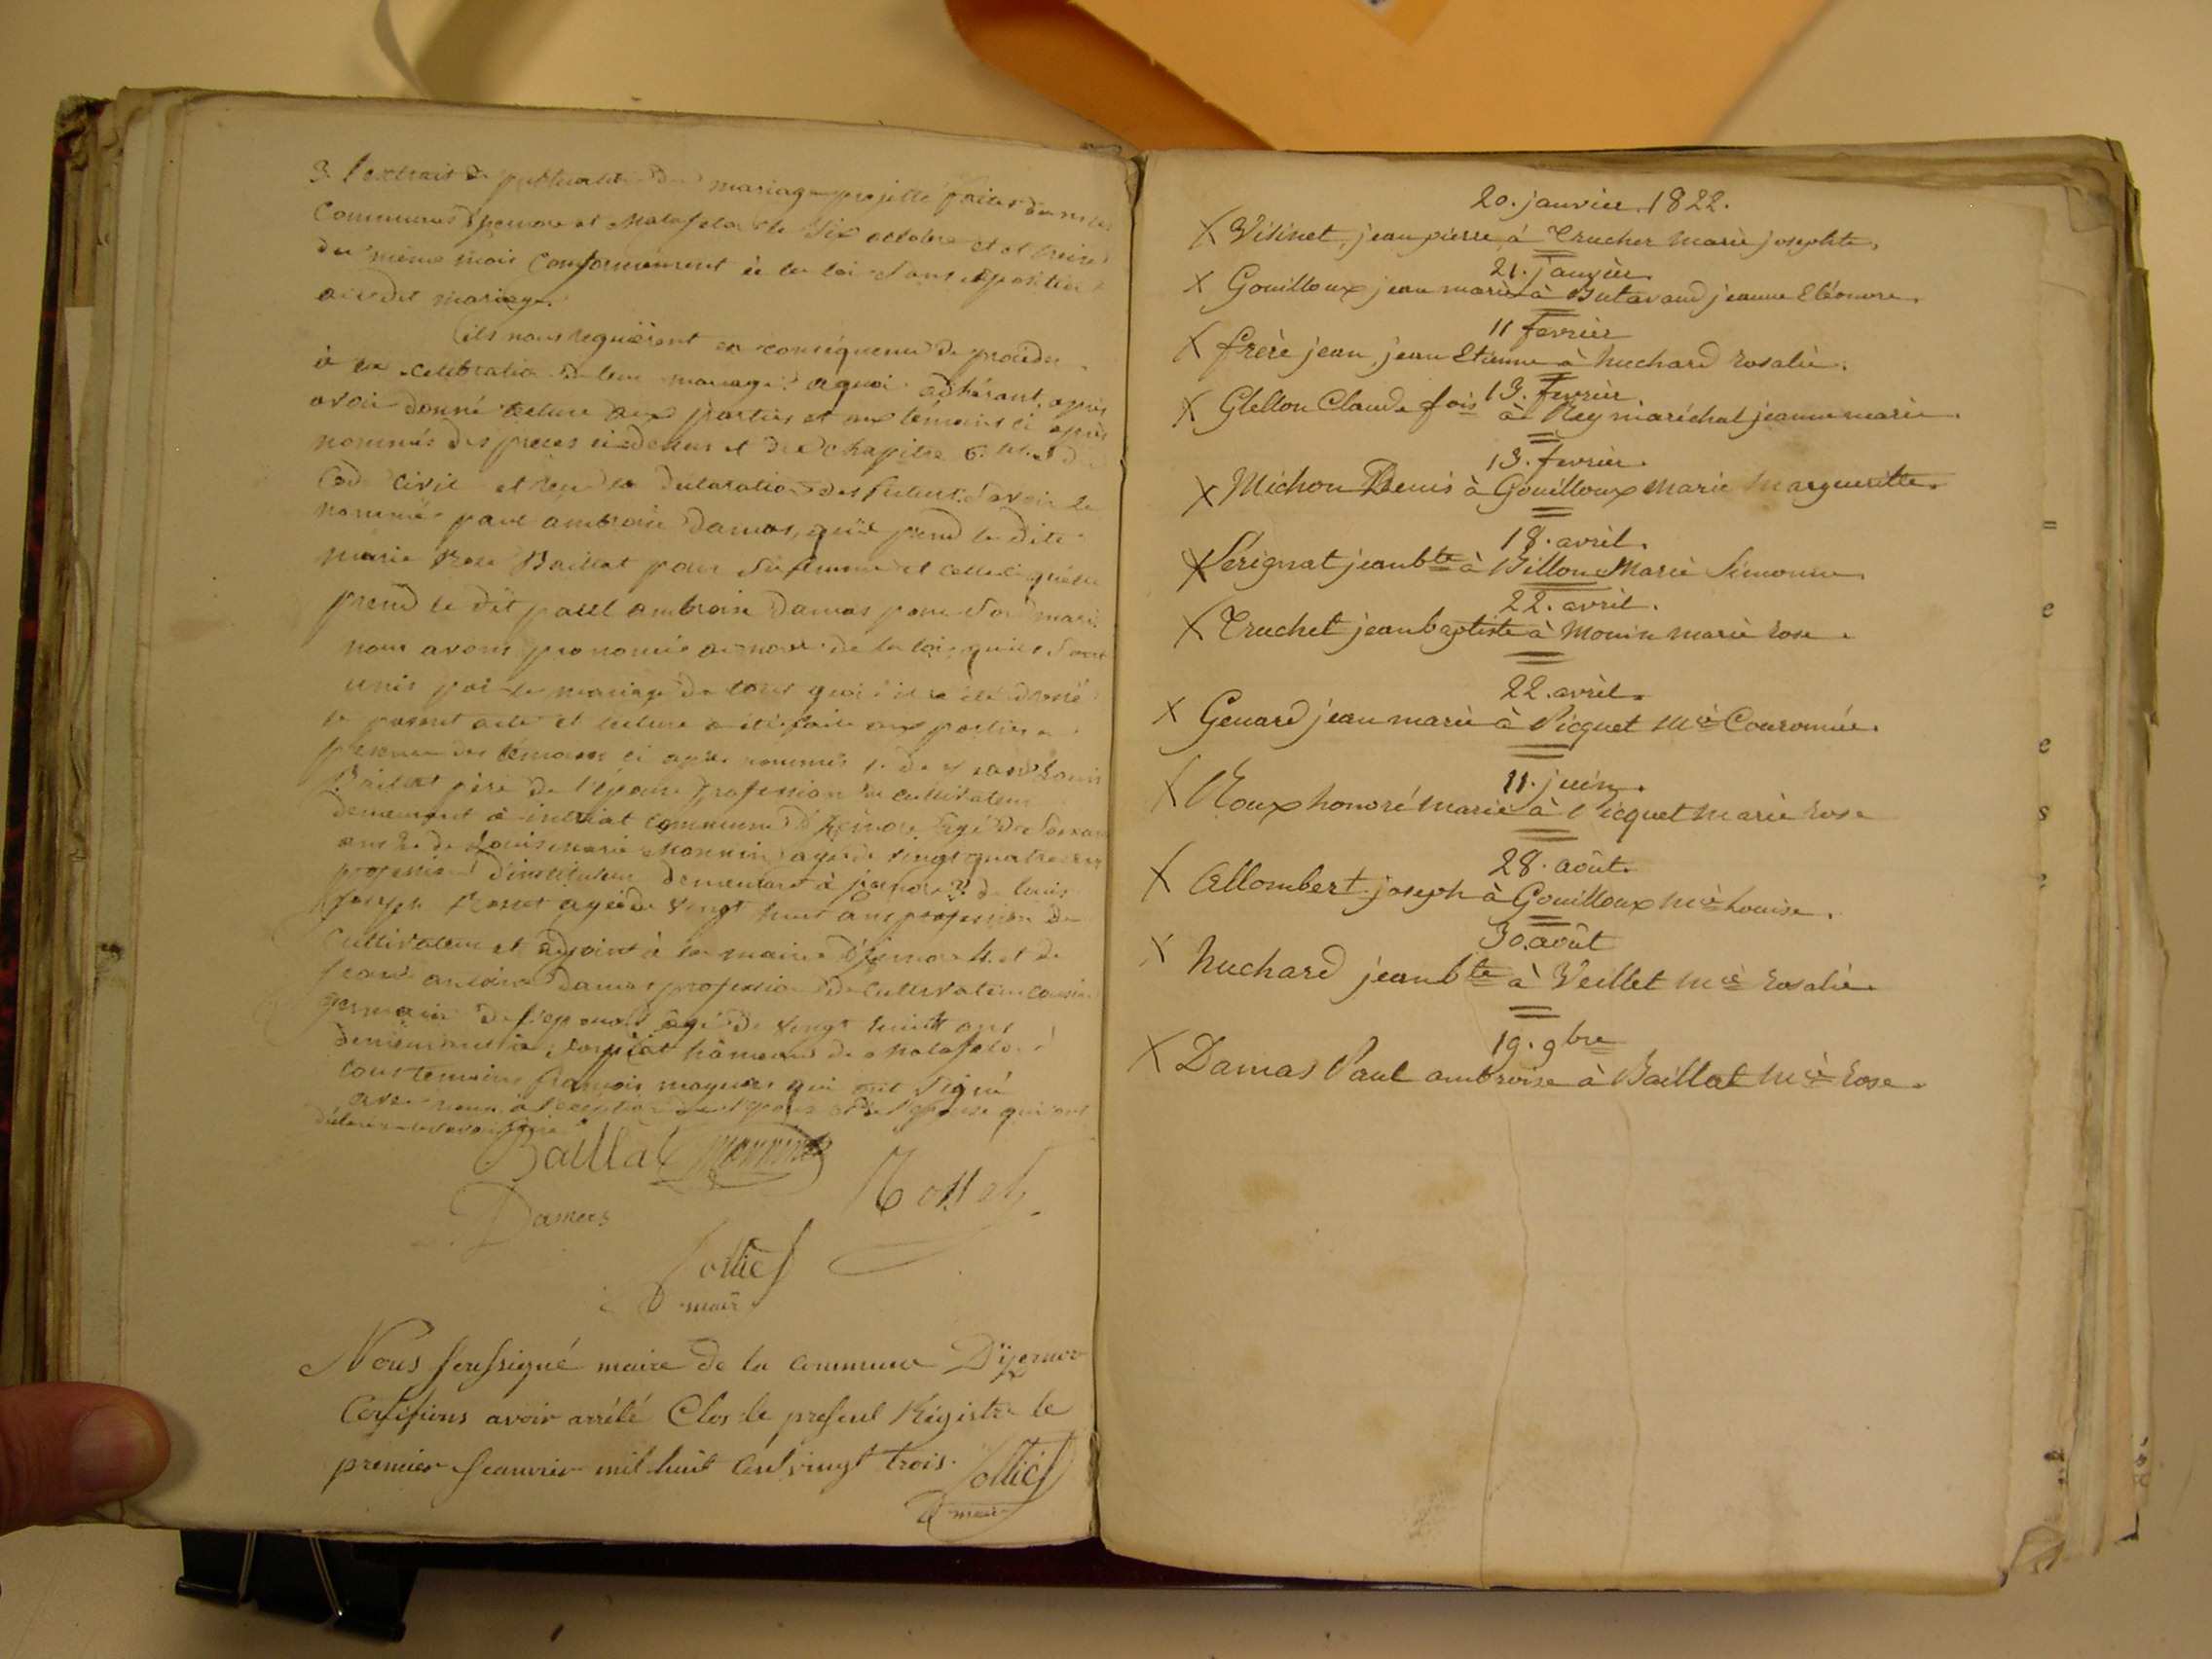 3. l'extrait de publication du mariage projetté faites dans les
Communes d'yzernore et Matafelon le six octobre et treize
du même mois Conformement à la loi sans opposition
au dit mariage.
ils nous requièrent en conséquence de procéder
à la celebration de leur mariage aquoi adhérant, après
avoir donné lecture aux parties et aux témoins ci après
nommés des pieces ci-dessus et du chapitre 6. du
Code Civil et reçu la déclaration des futurs savoir le
nommé paul ambroise Damas, qu'il prend la dite
marie Rose Baillat pour sa femme et celle ci qu'elle
prend le dit paul ambroise Damas pour son mari.
nous avons prononcé au nom de la loi qu'ils sont
unis par le mariage de tout quoi il a été dressé
le present acte et lecture a été faite aux parties en
presence des témoins ci après nommés 1. de Louis
Baillat père de l'épouse profession de cultivateur
demeurant à intriat commune d'yzernore agé de
ans 2. de Louis marie Monnin agé de vingt quatre ans
profession d'instituteur demeurant à yzernore 3. de louis
joseph Rosset agé de vingt huit ans profession de
Cultivateur et adjoint à la mairie d'yzernore 4. et de
Damas profession de Cultivateur cousin
germain de l'epoux agé de vingt huit ans
demeurant à hameau de Matafelon
tous témoins français majeurs qui ont signé
avec nous à l'exception de l'epoux et de l'epouse qui ont
déclaré ne savoir signer
Baillat Monnin
Rosset
Damas
maire
Nous soussigné maire de la commune D'yzernore
Certifions avoir arrété Clos le present Régistre le
premier Jeanvier mil huit cent vingt trois.
maire
20. janvier. 1822.
X Visinet, jean pierre à Trucher marie josephte,
21. janvier.
X Gouilloux jean marie à Butavand jeanne Eléonore.
11 fevrier
X frère jean, jean Etienne à huchard rosalie.
13. fevrier
X Glellon Claude fois à Rey maréchal jeanne marie.
13. fevrier.
X Michon Denis à Gouilloux marie marguerilte.
18. avril.
X Serignat jean bte à Billon Marie Simonne
22. avril.
X Truchet jean baptiste à Monin marie rose.
22. avril.
X Genard jean marie à Picquet Mie Couronnée.
11. juin.
X Roux honoré marie à Picquet marie rose
28. août.
X Allombert joseph à Gouilloux Mie Louise.
30. août
X huchard jean bte à Veillet Mie rosalie
19. 9bre
X Damas Paul ambroise à Baillat Mie rose.
=
e
e
s